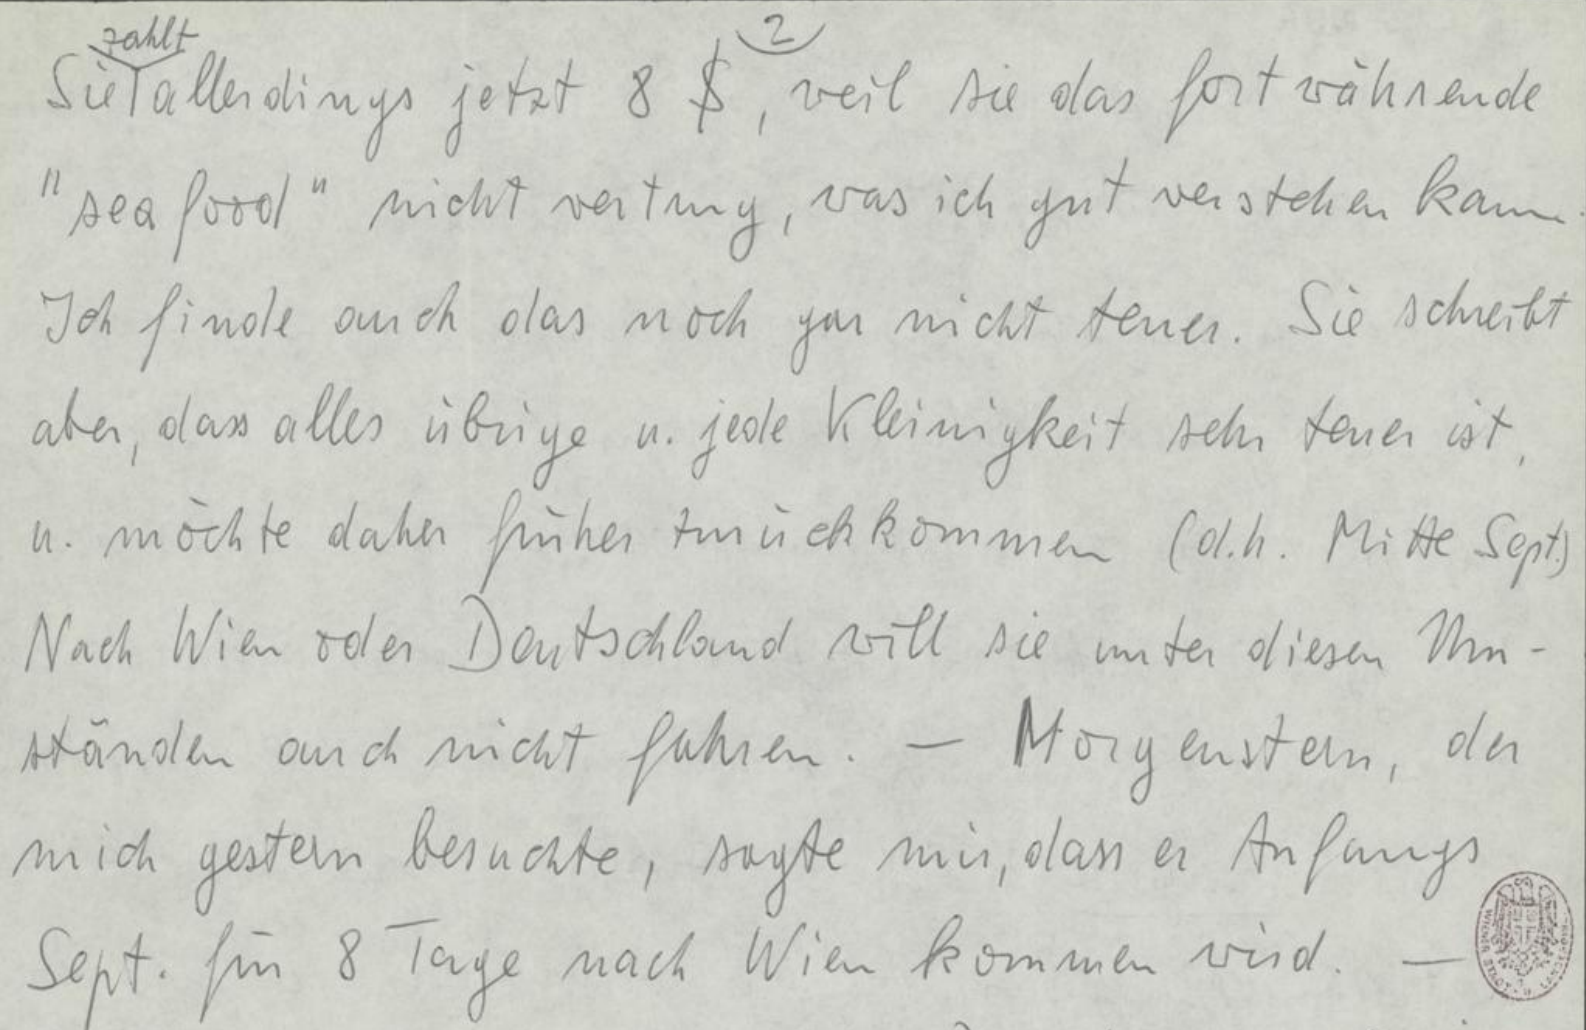 2
zahlt
Sie allerdings jetzt 8 $, weil sie das fortwährende
"sea food" nicht vertrug, was ich gut verstehen kann.
Ich finde auch das noch gar nicht teuer. Sie schreibt
aber, dass alles übrige u. jede Kleinigkeit sehr teuer ist,
u. möchte daher früher zurückkommen (d.h. Mitte Sept.)
Nach Wien oder Deutschland will sie unter diesen Um-
ständen auch nicht fahren. — Morgenstern, der
mich gestern besuchte, sagte mir, dass er Anfangs
Sept. für 8 Tage nach Wien kommen wird. —